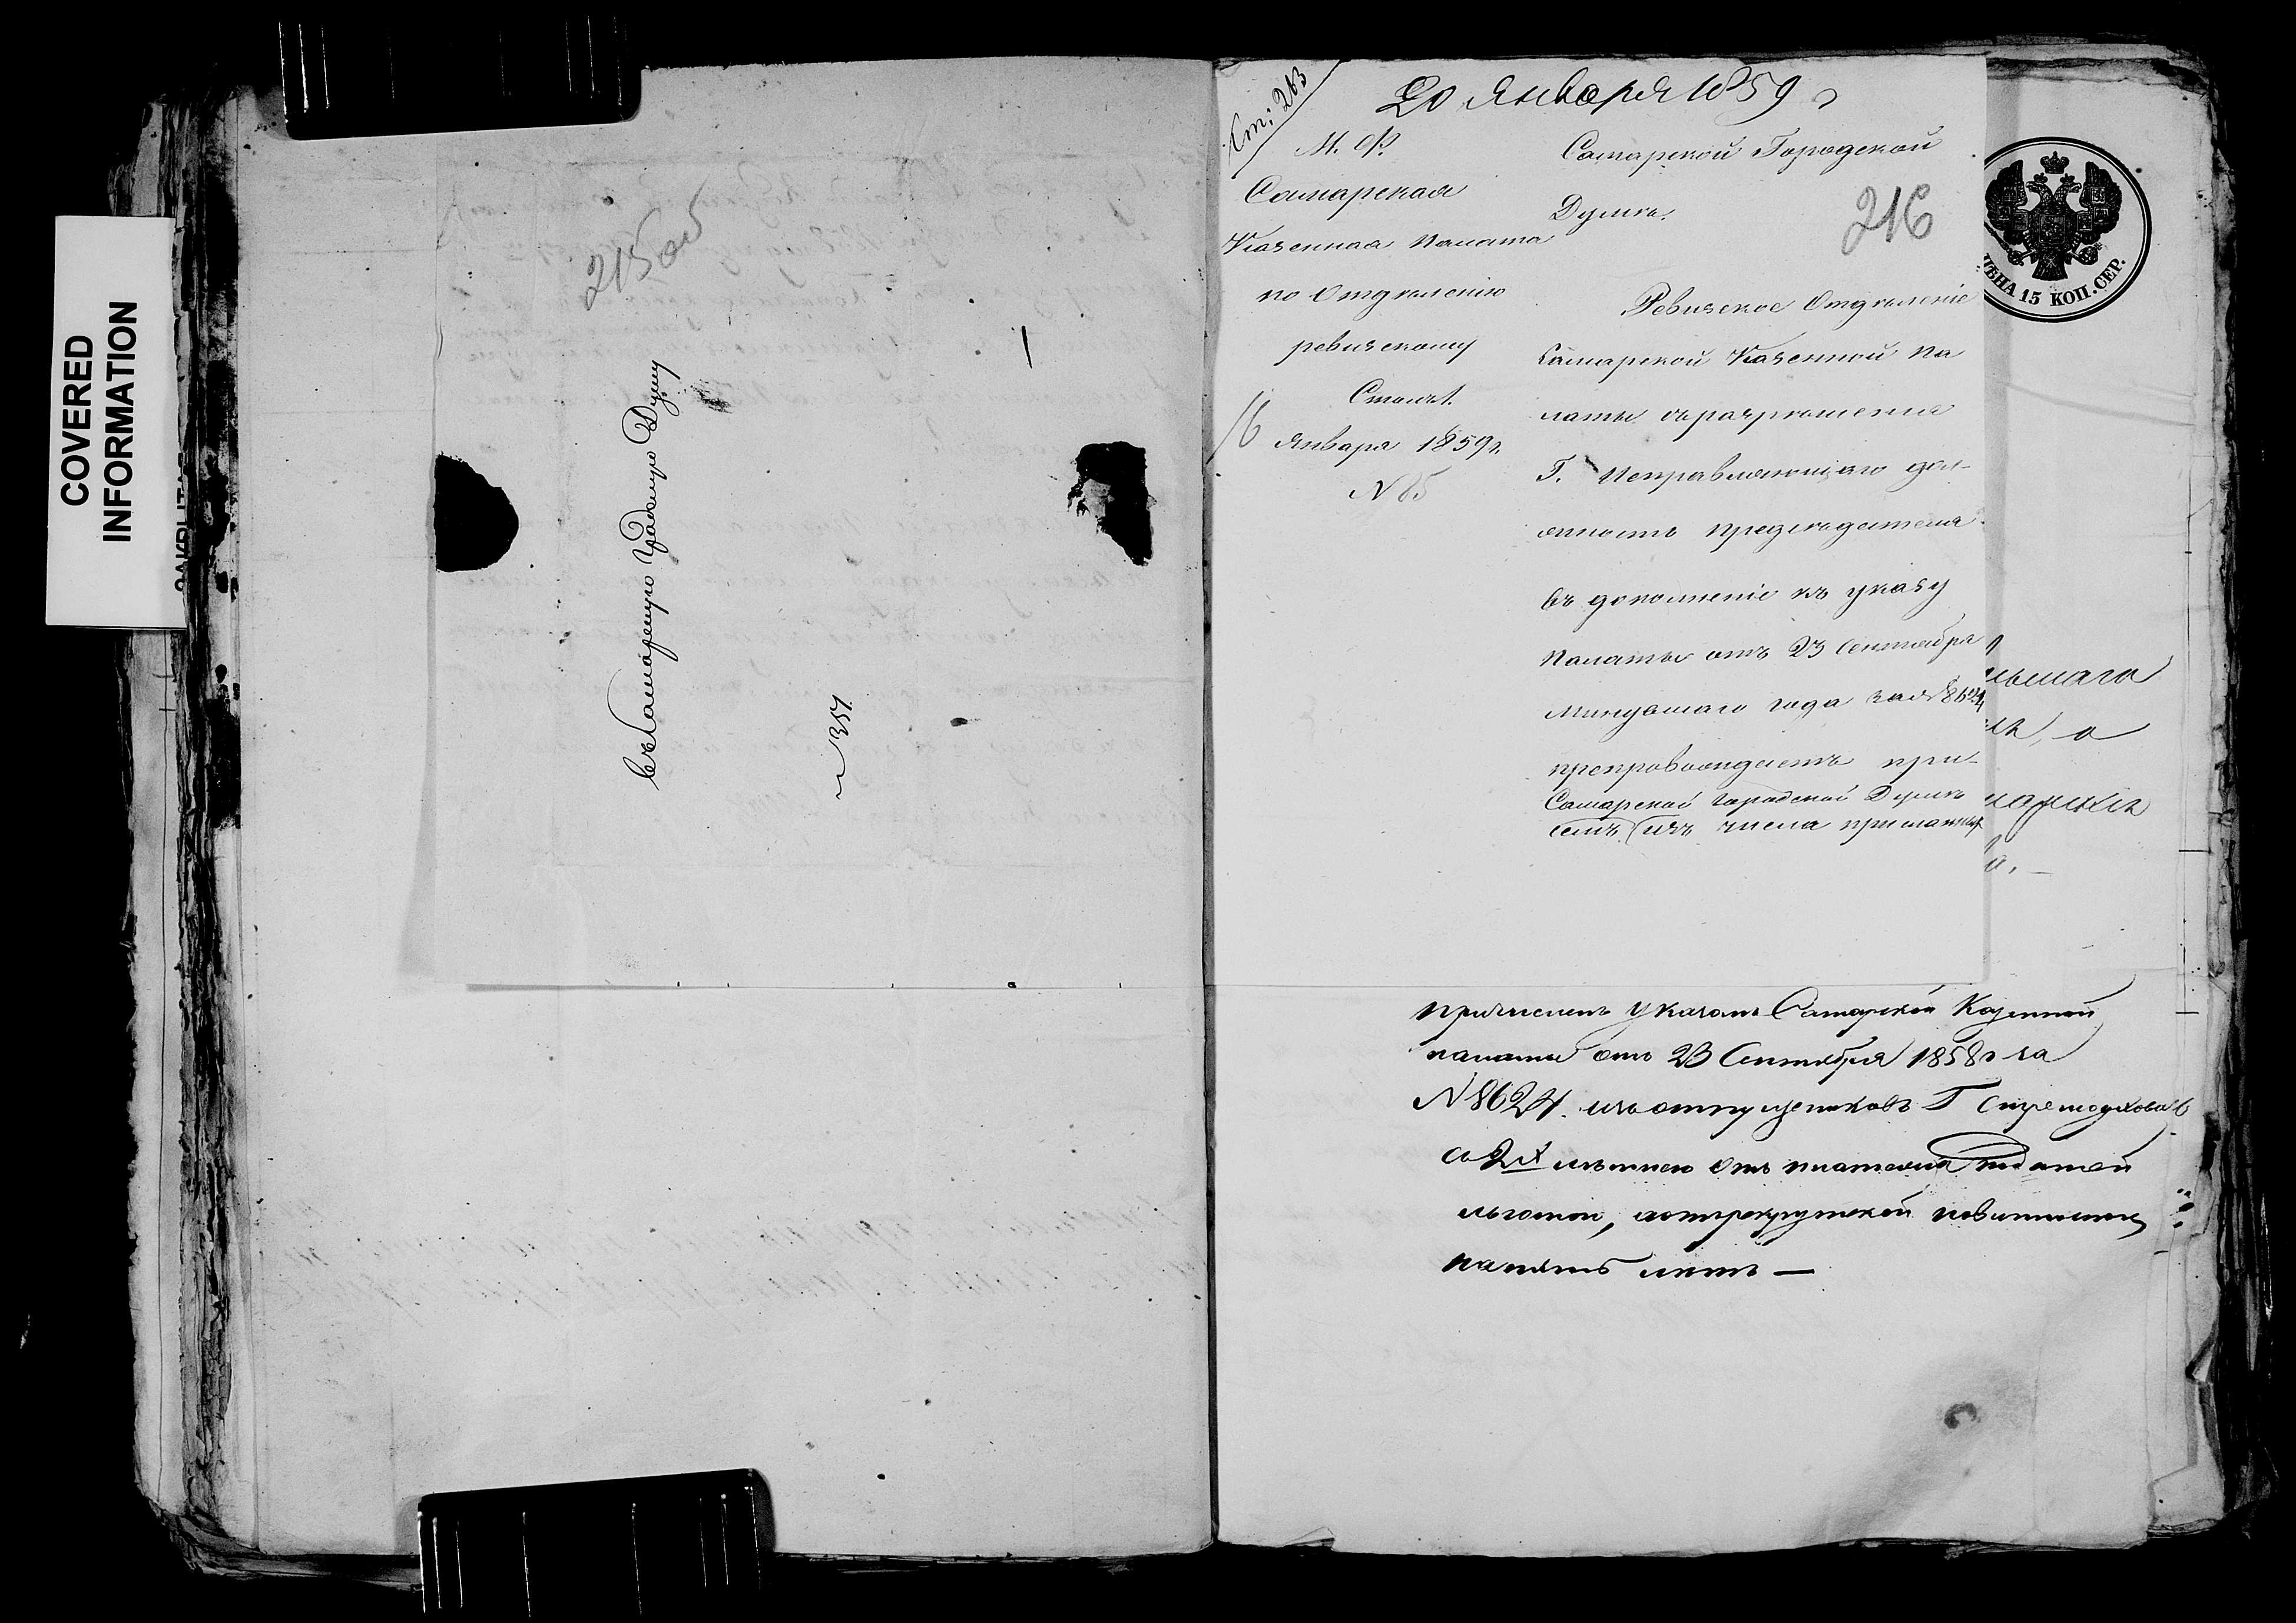 COVERED
INFORMATION
215 об
Въ Самарскую Градскую Думу
№ 351.
Ст: 213
20 Января 1859 г
М. Ф.
Самарская
Казенная Палата
по Отдѣленію
ревизскому
Столъ 1.
16 Января 1859 г.
N 85
Самарской Городской
Думѣ.
216
Ревизское Отдѣленіе
Самарской Казенной Па
латы съ разрѣшенія
Г. Исправляющаго дол-
жность предсѣдателя
въ дополненіе къ указу
Палаты отъ 23 Сентября
минувшаго года за № 8624
препровождаетъ при-
Самарской Городской Думѣ
семъ (изъ числа присланныхъ
ЦѢНА 15 КОП. СЕР.
причисленъ указомъ Самарской Казенной
палаты отъ 23 Сентября 1858 г за
N 8624. изъ отпущенниковъ Г
съ 2х лѣтнею отъ платежа податей
льготою, а отъ рекрутской повинности
на пять лѣтъ —